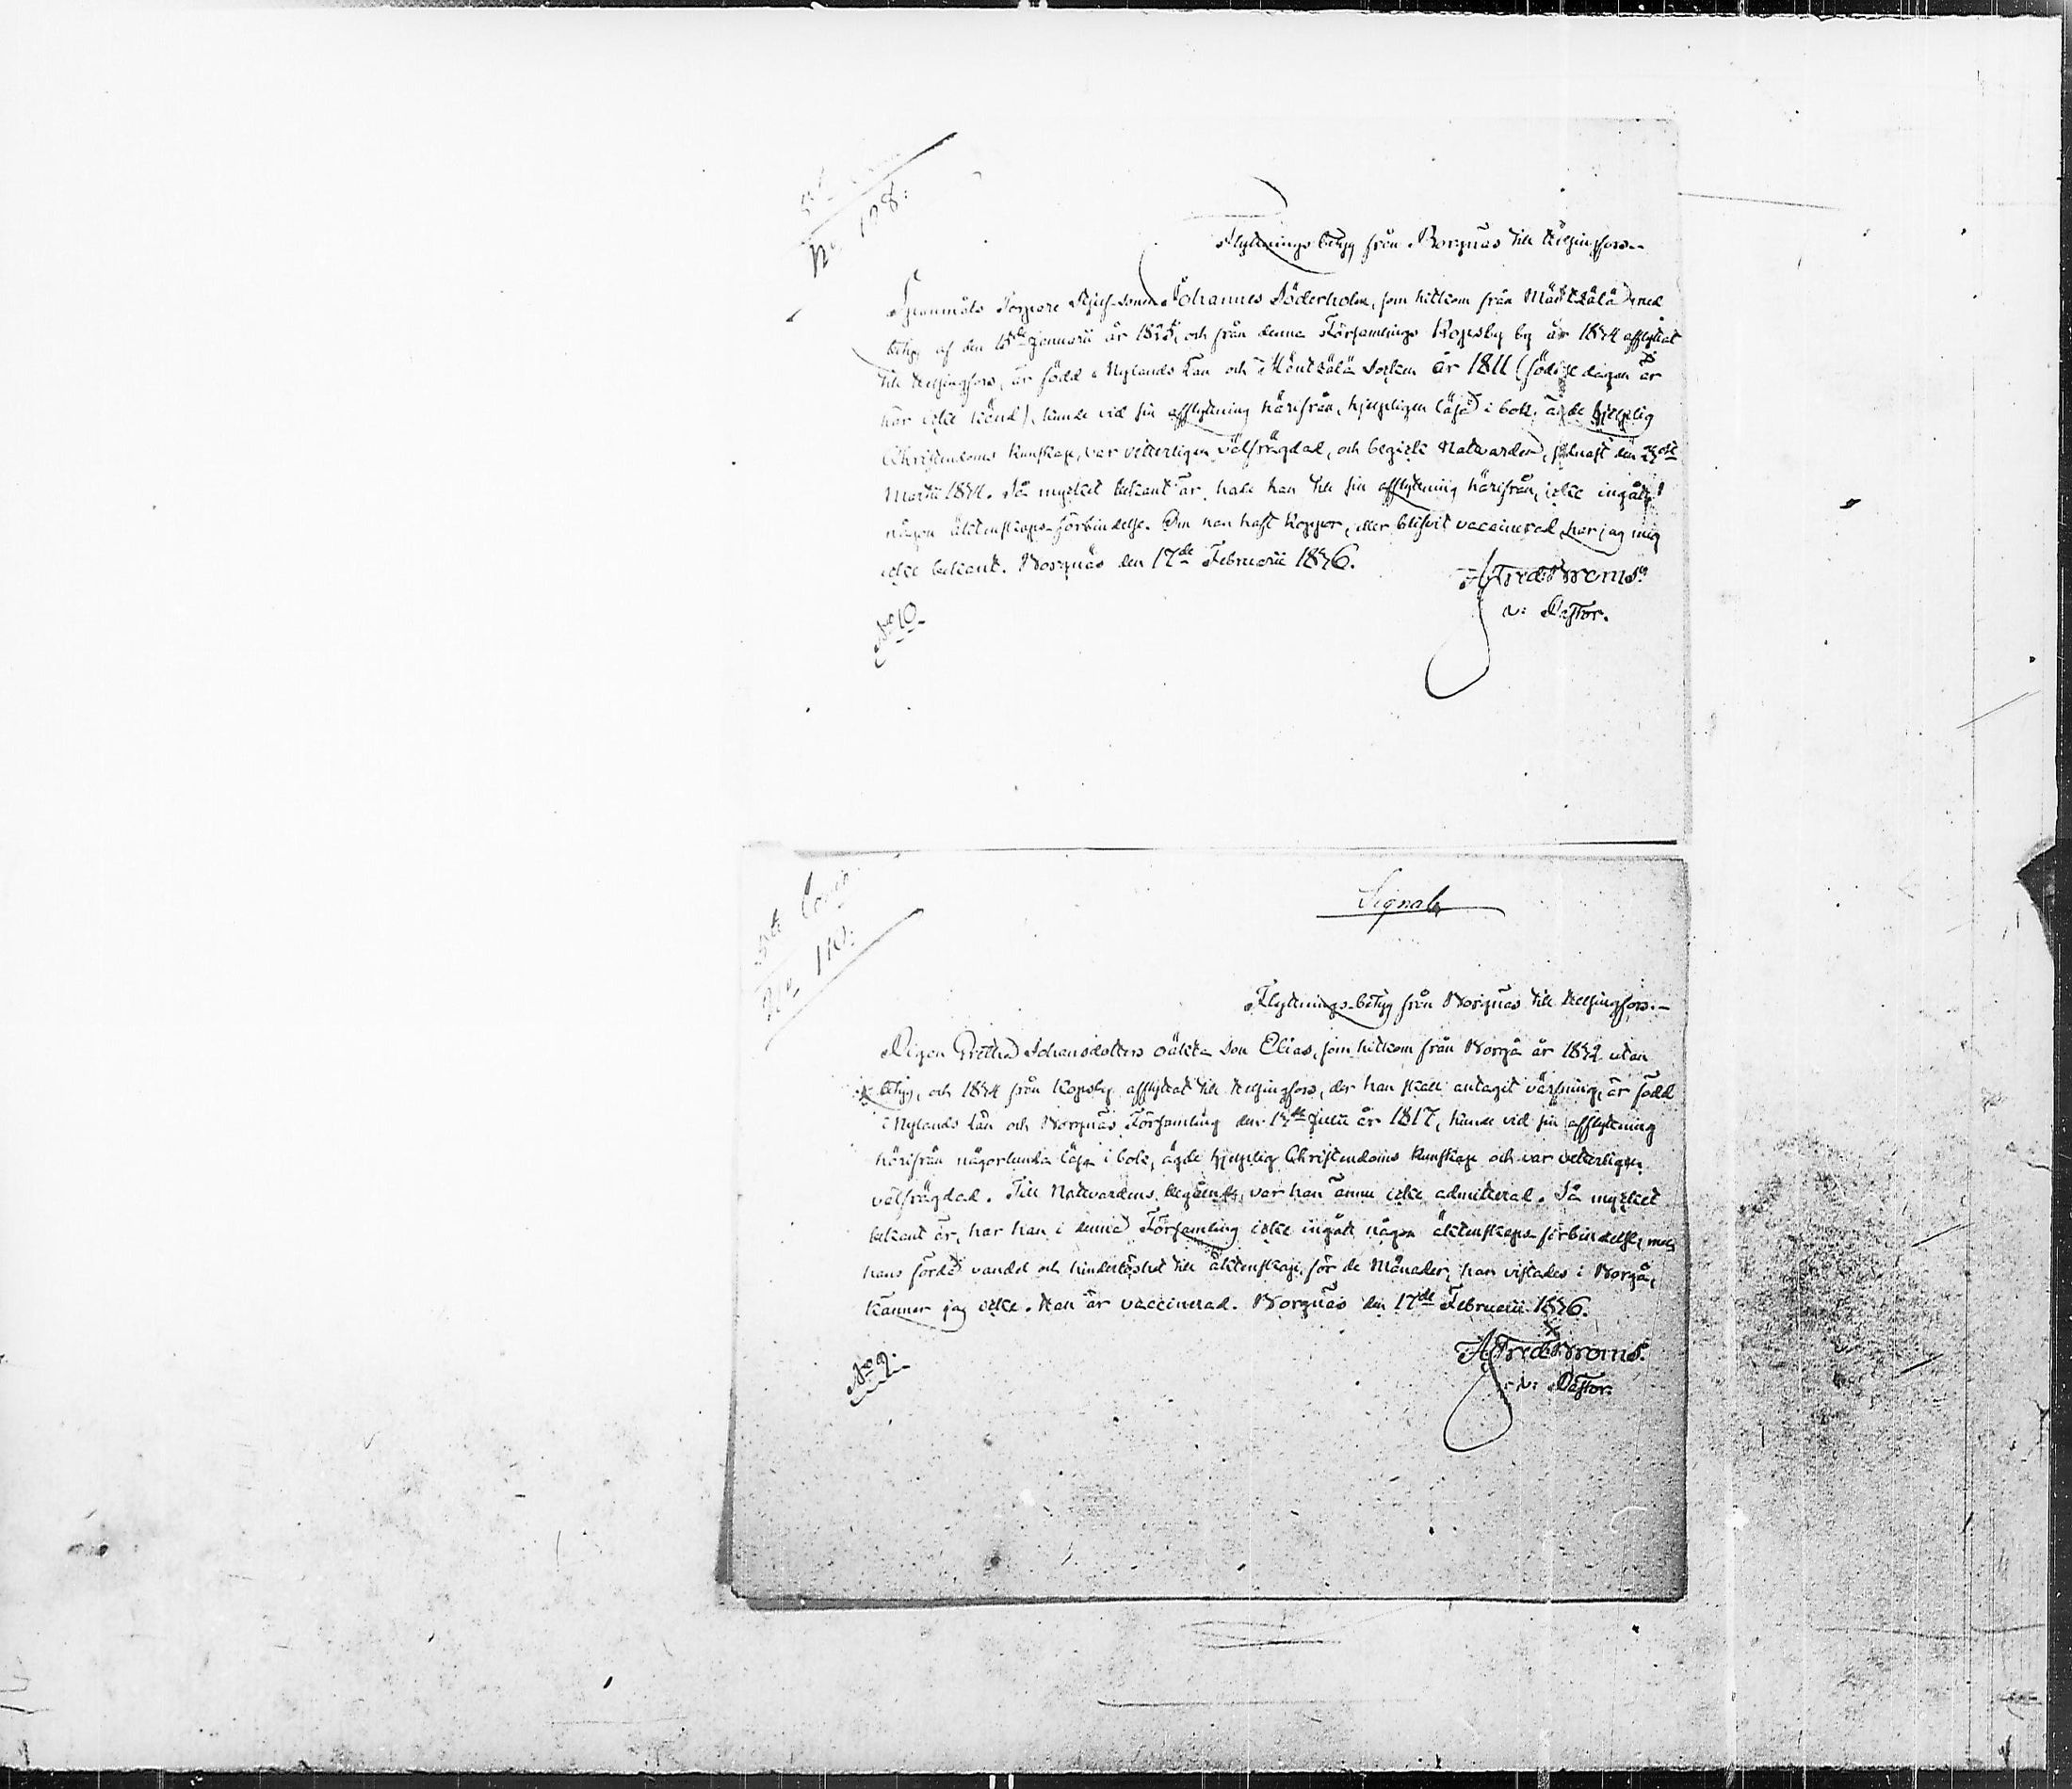 No 128.
Flyttnings-betyg från Borgnäs till Helsingfors.
Spanmåls Torpare Styfsonen Johannes Söderholm, som hitkom från Mäntzälä med
betyg af den 15de Januarii år 1825, och från denna Församlings Kopsby by år 1834 afflyttat
till Helsingfors, är född i Nylands Län och Mäntzälä Socken år 1811 (födelsedagen är
här icke känd), kunde vid sin afflyttning härifrån, hjelpligen läsa i bok, ägde hjelplig
Christendoms kunskap, var vetterligen välfrägdad, och begick Nattvarden, sednast den
Martii 1834. Så myckets bekant är, hade han till sin afflyttning härifrån, icke ingått
någon äktenskaps-förbindelse. Om han haft koppor, eller blifvit vaccinerad har jag mig
icke bekant. Borgnäs den 17de Februarii 1836.
A. Fred. Broms.
v: Pastor.
No 10.
Signal
No 110.
Flyttnings-betyg från Borgnäs till Helsingfors.
Pigan Gretha Johansdotters oäkta Son Elias, som hitkom från Borgå år 1832 utan
betyg, och 1834 från Kopsby afflyttat till Helsingfors, der han skall antagit värfning, är född
i Nylands Län och Borgnäs Församling den 17de Julii år 1817, kunde vid sin afflyttning
härifrån någorlunda läsa i bok, ägde hjelplig Christendoms kunskap och var vetterligen
välfrägdad. Till Nattvardens begående, var han ännu icke admitterad. Så mycket
bekant är, har han i denna Församling icke ingått någon äktenskaps-förbindelse, men
hans förda vandel och hinderlöshet till äktenskap för de Månader, han vistades i Borgå,
känner jag icke. Han är vaccinerad. Borgnäs den 17de Februarii 1836.
A. Fred. Broms.
v: Pastor.
No 9.